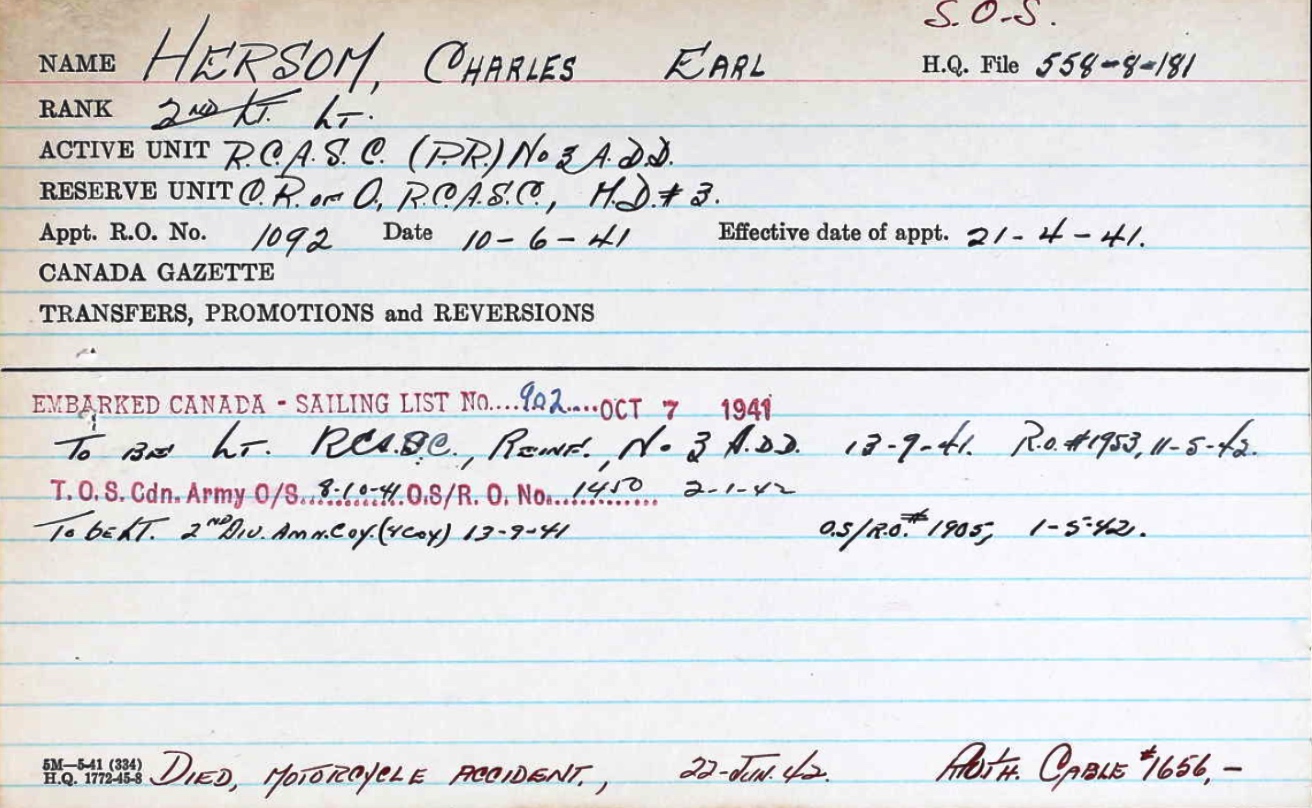 S.O.S.
NAME HERSOM, CHARLES EARL H.Q. File 558-8-181
RANK 2ND LT. LT.
ACTIVE UNIT R.C.A.S.C. (P.R.) No 3 A.D.D.
RESERVE UNIT O.R. OF O, R.C.A.S.C., M.D. # 3.
Appt. R.O. No. 1092 Date 10-6-41 Effective date of appt. 21-4-41.
CANADA GAZETTE
TRANSFERS, PROMOTIONS and REVERSIONS
EMBARKED CANADA - SAILING LIST No....902....OCT 7 1941
TO BE LT. R.C.A.S.C., REINF., No 3 A.D.D. 13-9-41. R.O. #1953, 11-5-42.
T.O.S. Cdn. Army O/S..8-10-41.O.S/R.O. No...1450....... 2-1-42
To be LT. 2ND DIV. AMN. COY. (4 COY) 13-9-41 O.S/R.O. # 1905, 1-5-42.
5M—5-41 (334)
H.Q. 1772-45-8 DIED, MOTORCYCLE ACCIDENT., 22-JUN. 42. AUTH. CABLE #1656, -